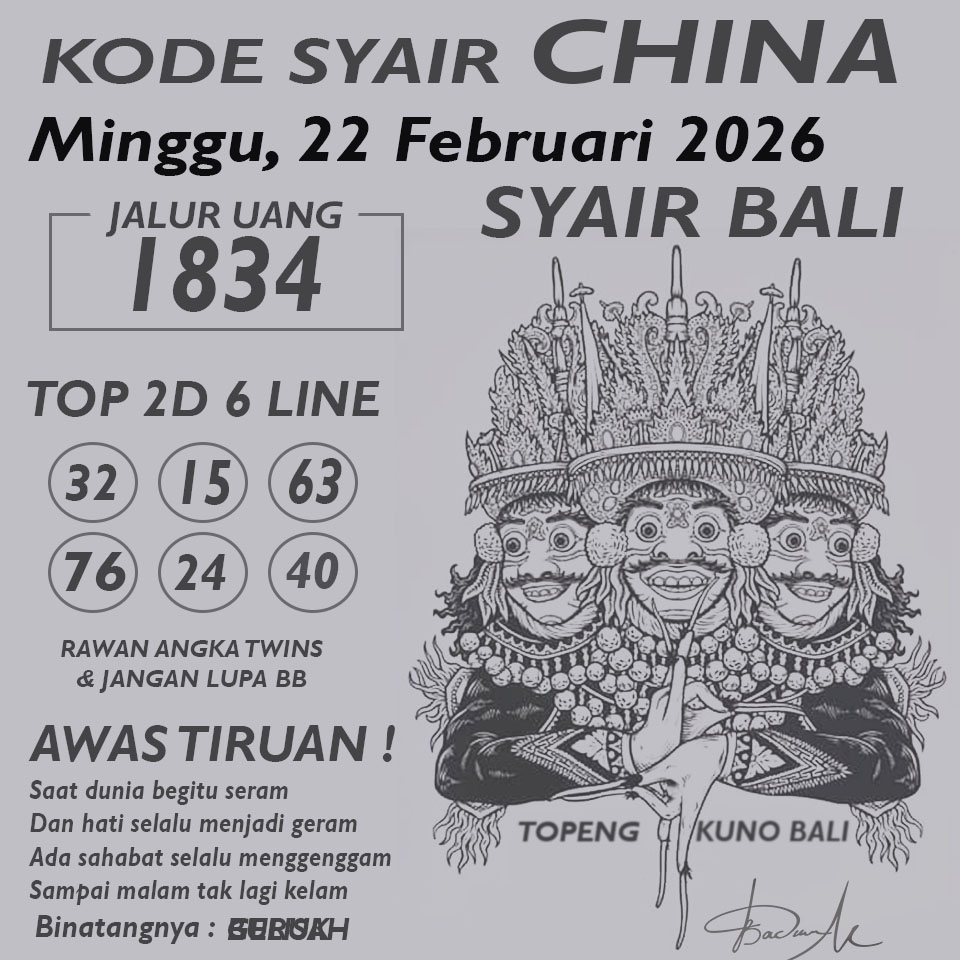 KODE SYAIR CHINA
Minggu, 22 Februari 2026
SYAIR BALI
JALUR UANG
1834
TOP 2D 6 LINE
32 15 63
76 24 40
RAWAN ANGKA TWINS
& JANGAN LUPA BB
AWAS TIRUAN !
Saat dunia begitu seram
Dan hati selalu menjadi geram
Ada sahabat selalu menggenggam
Sampai malam tak lagi kelam
Binatangnya :
TOPENG KUNO BALI